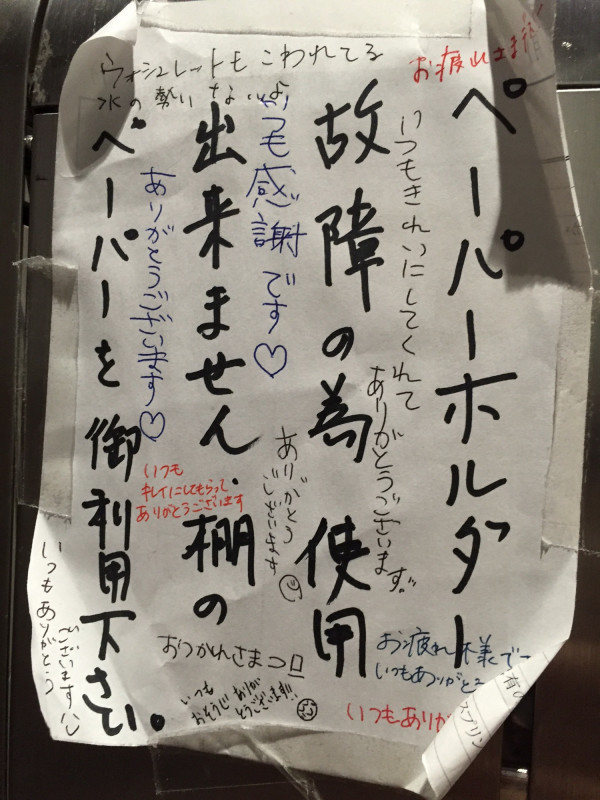 ペーパーホルダー
故障の為 使用
出来ません。棚の
ペーパーを御利用下さい。
お疲れさま
いつもきれいにしてくれて
ありがとうございます。
いつも感謝です♡
ありがとうございます♡
ウォシュレットもこわれてる
水の勢いないよ
ありがとう
ございます
いつも
キレイにしてもらって
ありがとうございます
いつもありがとう
ございます
おつかれさま
いつも
おそうじありが
とうございます!!
お疲れ様で
いつもありがとう
いつもあり
スプリン